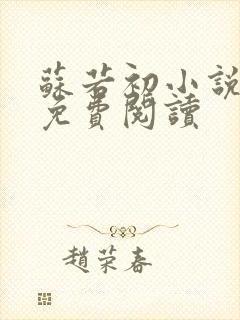 蘇若初小說
免費閱讀
趙荣春